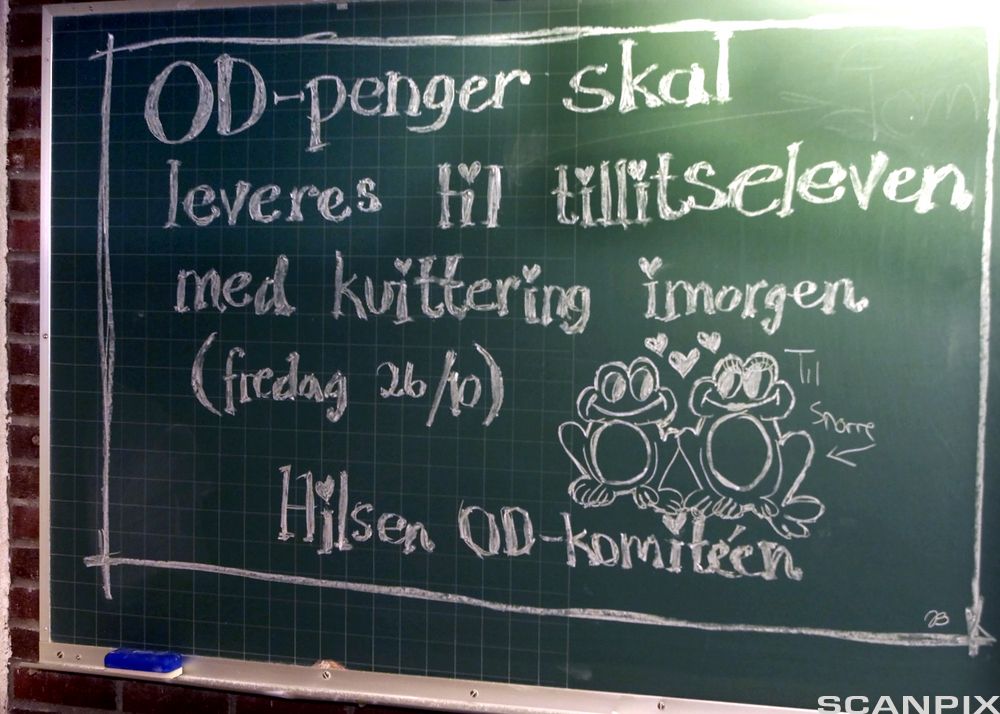 OD-penger skal
leveres til tillitseleven
med kvittering imorgen
(fredag 26/10)
Til
Snorre
Hilsen OD-komitéen
JB
SCANPIX